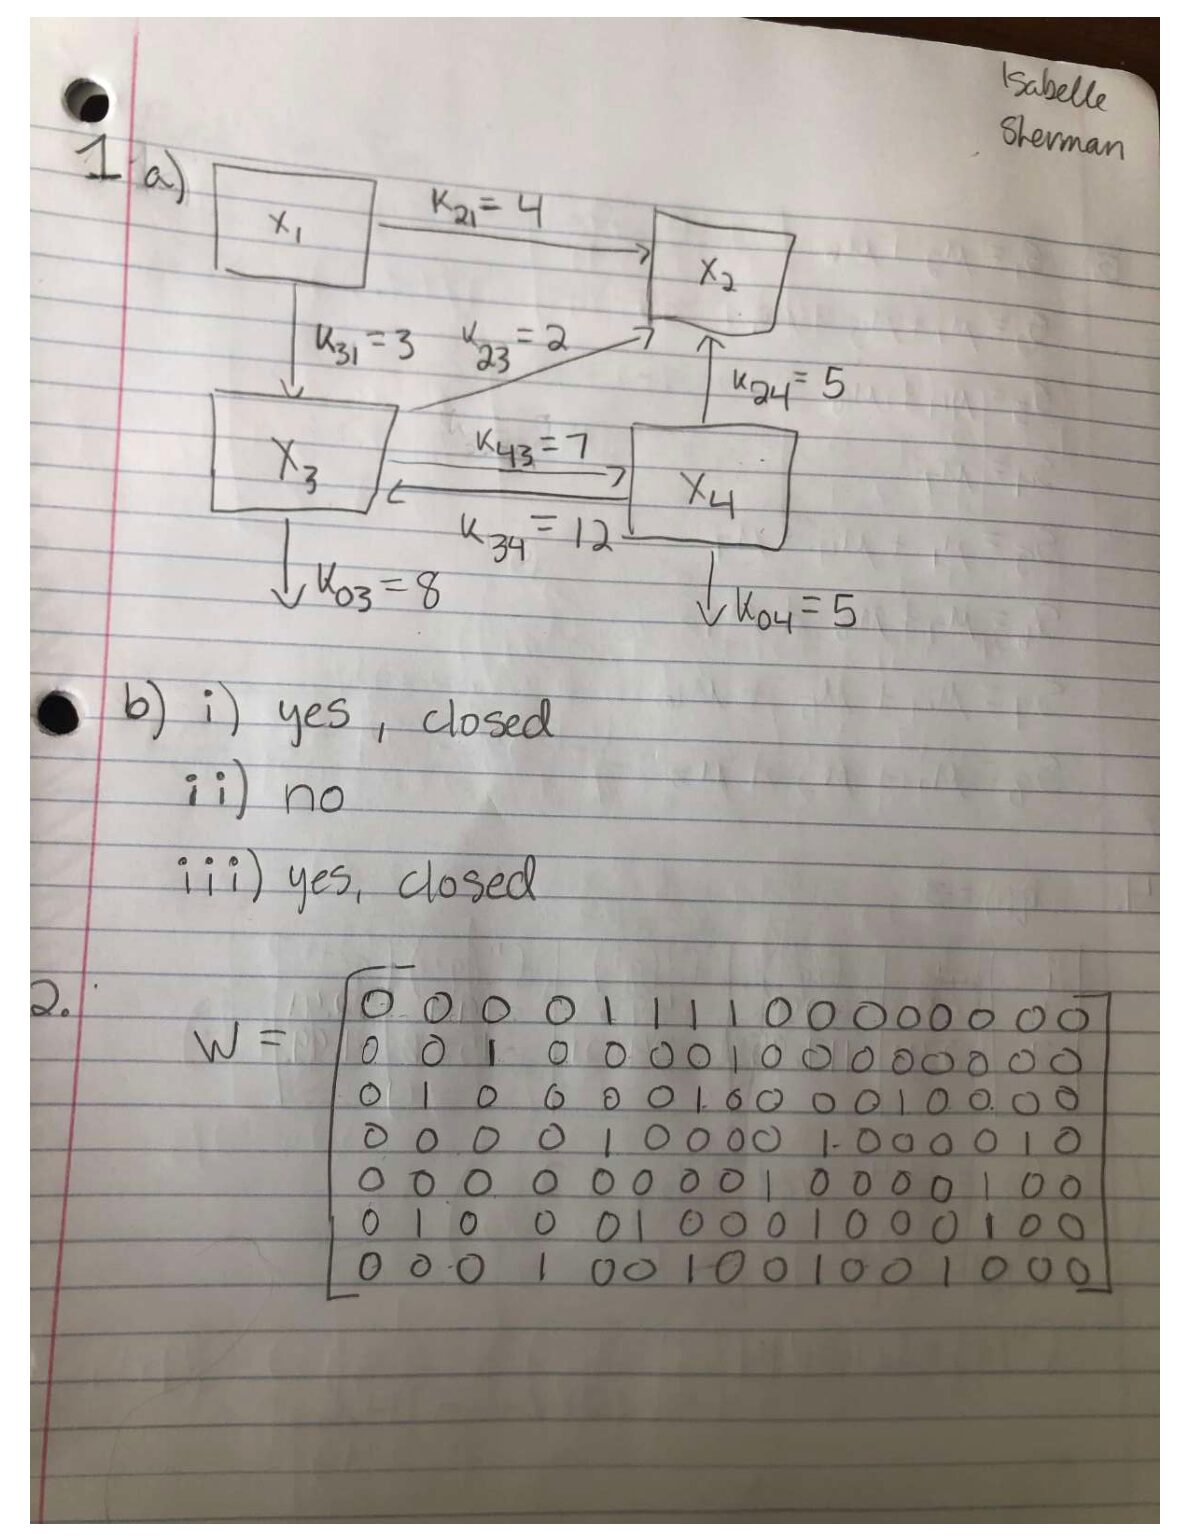 Isabelle
Sherman
1 a)
x₁
K₂₁ = 4
x₂
K₃₁ = 3
K₂₃ = 2
K₂₄ = 5
X₃
K₄₃ = 7
X₄
K₃₄ = 12
K₀₃ = 8
K₀₄ = 5
b) i) yes, closed
ii) no
iii) yes, closed
2.
W =
0 0 0 0 1 1 1 1 0 0 0 0 0 0 0 0
0 0 1 0 0 0 0 1 0 0 0 0 0 0 0 0
0 1 0 0 0 0 1 0 0 0 0 1 0 0 0 0
0 0 0 0 1 0 0 0 0 1 0 0 0 0 1 0
0 0 0 0 0 0 0 0 1 0 0 0 0 1 0 0
0 1 0 0 0 1 0 0 0 1 0 0 0 1 0 0
0 0 0 1 0 0 1 0 0 1 0 0 1 0 0 0